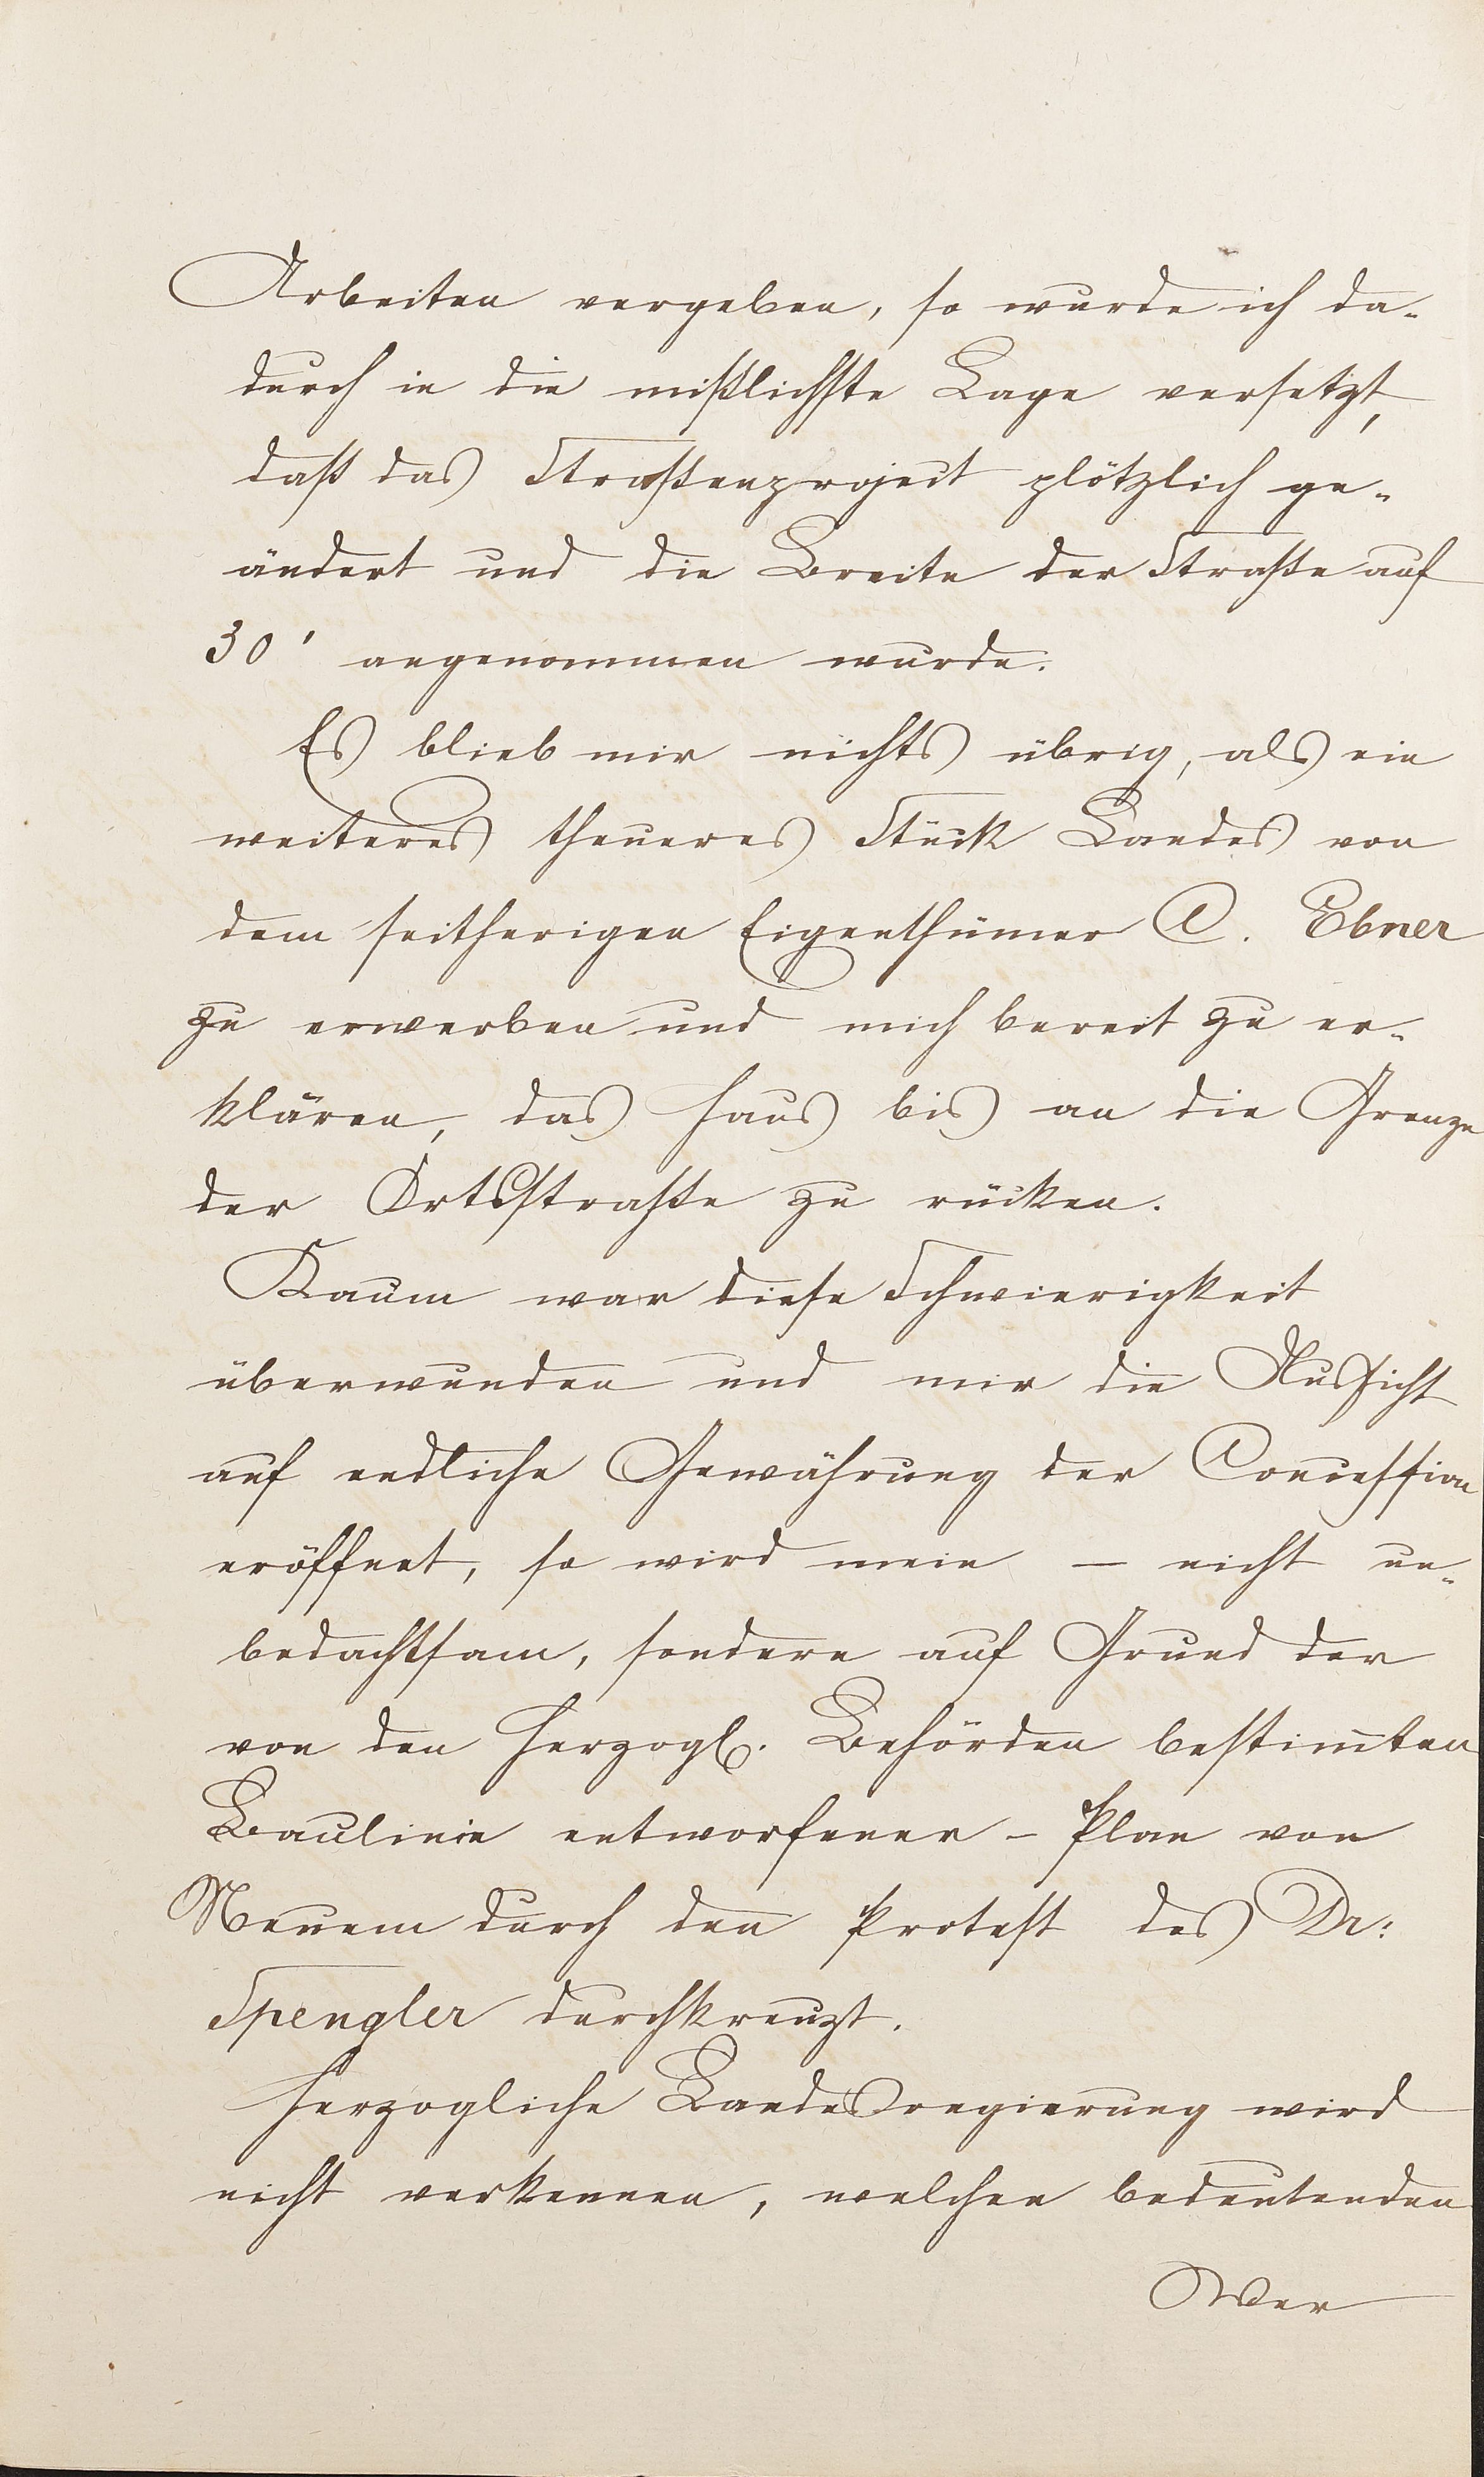 Arbeiten vergeben, so wurde ich da-
durch in die mißlichste Lage versetzt,
daß das Straßenproject plötzlich ge-
ändert und die Breite der Straße auf
30' angenommen wurde.
Es blieb mir nichts übrig, als ein
weiteres theueres Stück Landes von
dem seitherigen Eigenthümer C. Ebner
zu erwerben und mich bereit zu er-
klären, das Haus bis an die Grenze
der Ortsstraße zu rücken.
Kaum war diese Schwierigkeit
überwunden und mir die Aussicht
auf endliche Gewährung der Concession
eröffnet, so wird mein – nicht un-
bedachtsam, sondern auf Grund der
von den Herzogl. Behörden bestim̅ten
Baulinie entworfener – Plan von
Neuem durch den Protest des Dr:
Spengler durchkreuzt.
Herzogliche Landesregierung wird
nicht verkennen, welchen bedeutenden
Wer